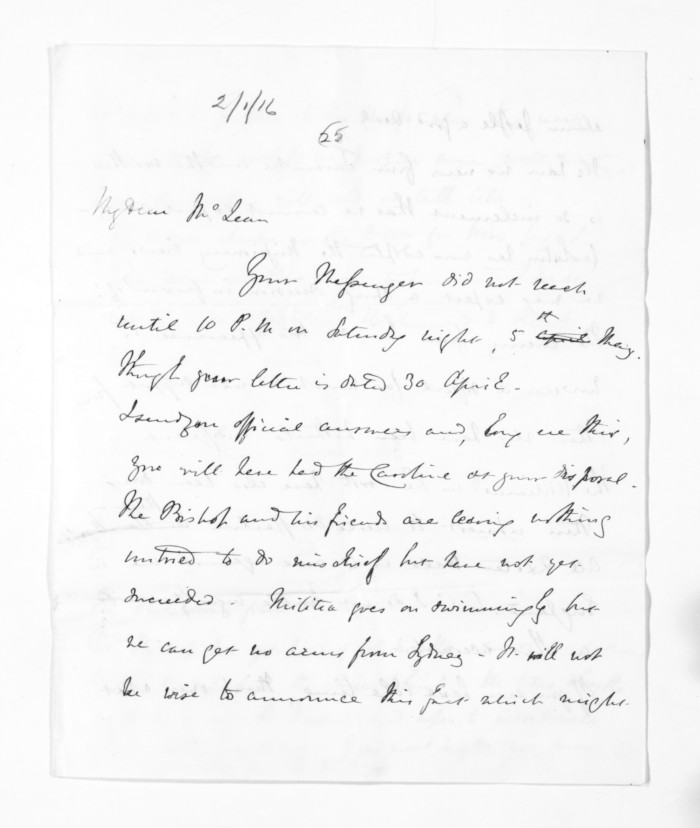 2/1/16
65
My dear McLean
Your Messenger did not reach
until 10 P.M on Saturday night, 5th April May.
though your letter is dated 30 April -
I send you official answers and, long ere this,
you will have had the Caroline at your disposal.
The Bishop and his friends are leaving nothing
untried to do mischief but have not yet
succeeded - Militia goes on swimmingly but
we can get no arms from Sydney - It will not
be wise to announce this fact which might